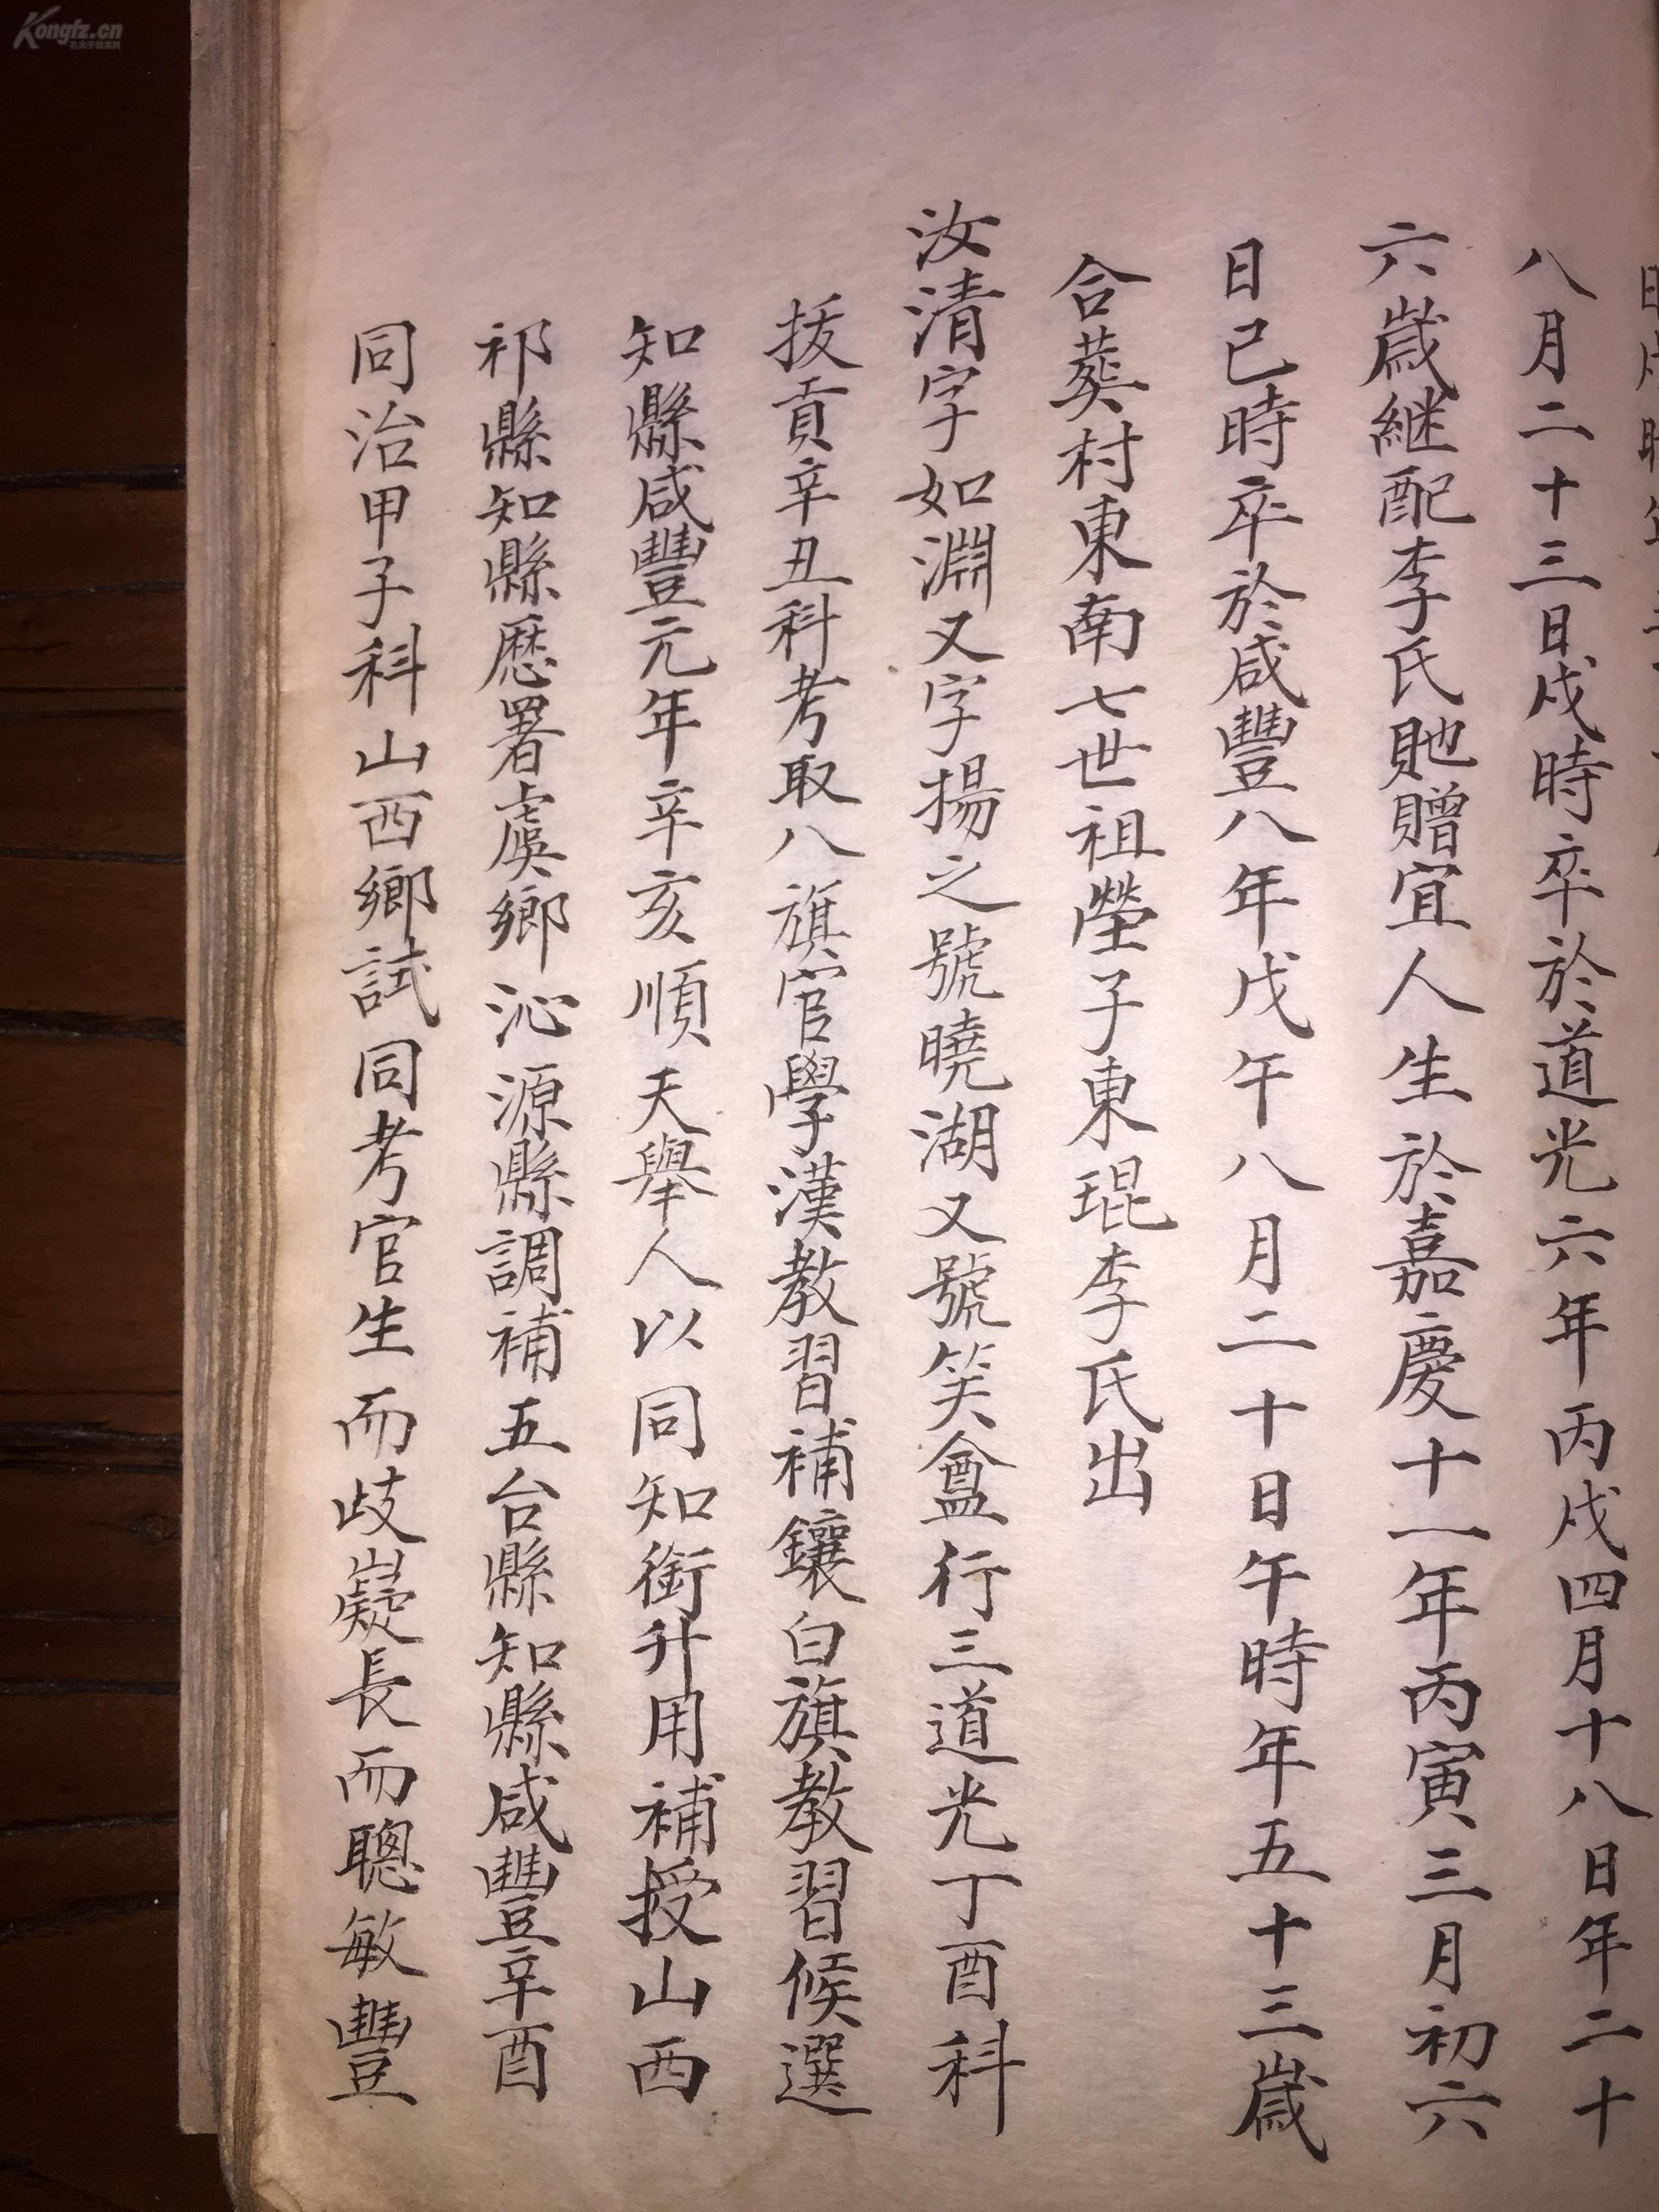 八月二十三日戌時卒於道光六年丙戌四月十八日年二十
六歲継配李氏貤贈宜人生於嘉慶十一年丙寅三月初六
日巳時卒於咸豐八年戊午八月二十日午時年五十三歲
合葬村東南七世祖塋子東琨李氏出
汝清字如淵又字揚之號曉湖又號笑盦行三道光丁酉科
拔貢辛丑科考取八旗官學漢教習補鑲白旗教習候選
知縣咸豐元年辛亥順天舉人以同知銜升用補授山西
祁縣知縣歷署虞鄉沁源縣調補五台縣知縣咸豐辛酉
同治甲子科山西鄉試同考官生而歧嶷長而聰敏豐
Kongfz.cn